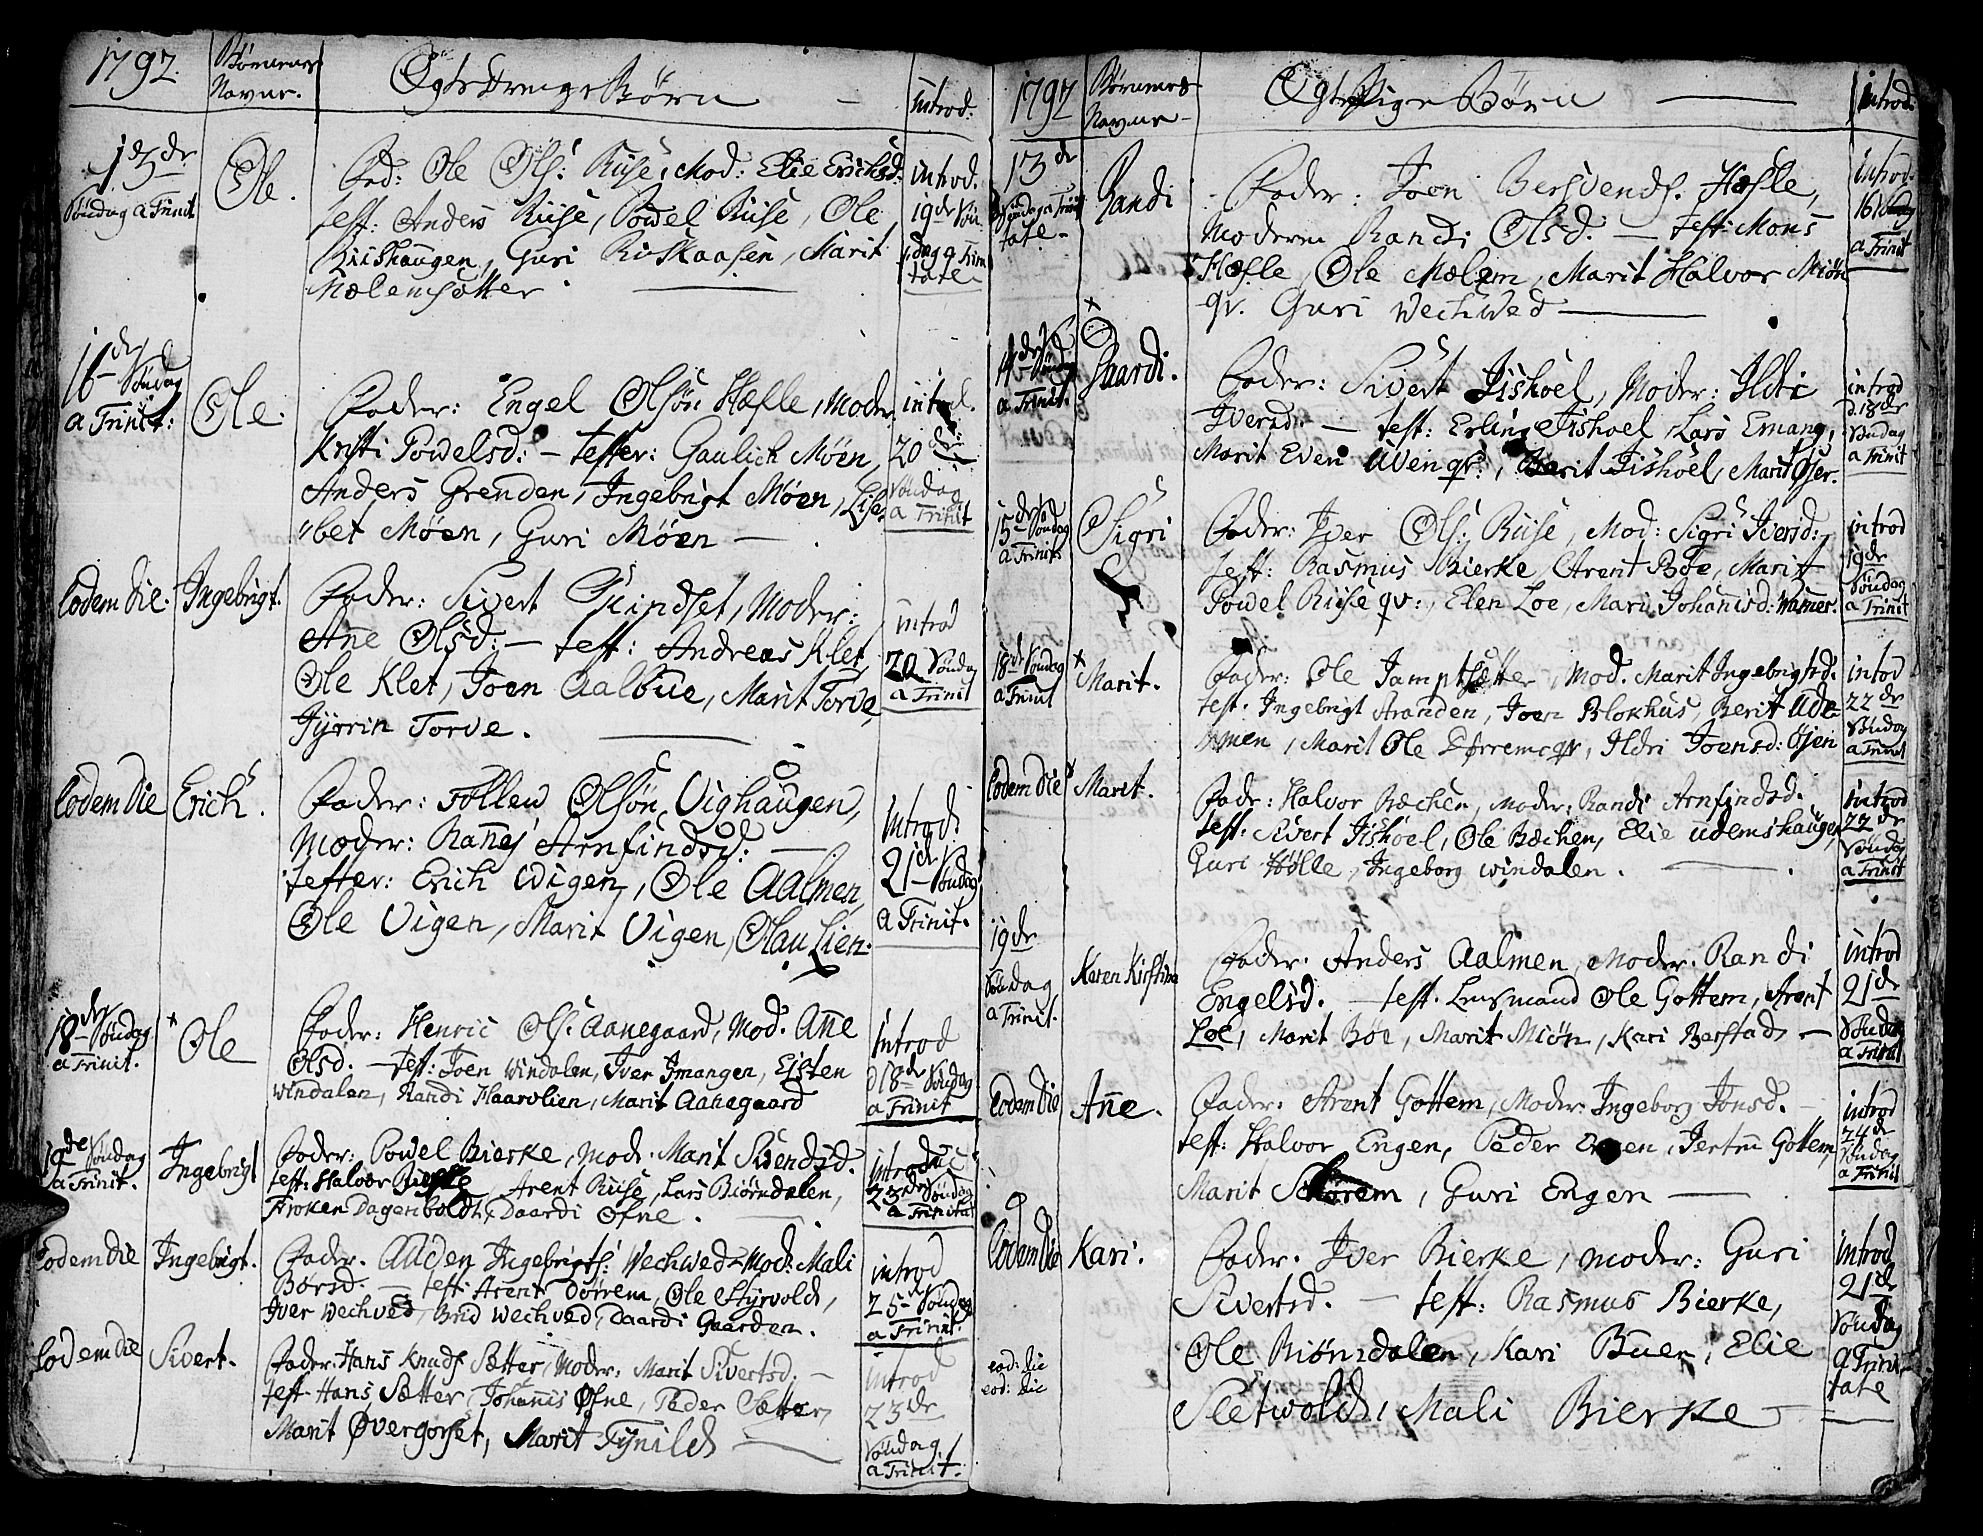 1792.
Børnenes
Navne.
Ægte Drenge Børn
introd:
13de
Søndag a Trinit.
Ole.
Fad: Ole Ols: Riise, Mod: Elie Erichsd:
test: Anders Riise, Powel Riise, Ole
Riishaugen, Guri Riiskaasen, Marit
Mælemsætter.
introd.
19de Søn¬
dag a Trini
tate
16de Søndag
a Trinit:
Ole.
Fader: Engel Olsøn Hæfle, Moder
Kristi Powelsd: — tester: Gaulich Møen,
Anders Grenden, Ingebrigt Møen, Lisa¬
bet Møen, Guri Møen —
introd.
20de
Søndag
a Trinit
Eodem die.
Ingebrigt.
Fader: Sivert Grindset, Moder:
Anne Olsd: — test: Andreas Klet,
Ole Klet, Joen Aalbue, Marit Torve,
Jyrrin Torve.
introd
20 Søndag
a Trinit
Eodem die
Erich.
Fader: Tollew Olsøn Vighaugen,
Moder: Rannej Arnfindsd: —
tester: Erich Wigen, Ole Aalmen,
Ole Vigen, Marit Vigen, Olau Lien.
introd:
21de Søndag
a Trinit.
18de Søndag
a Trinit.
Ole
Fader: Henric Ols: Aanegaard, Mod. Anne
Olsd. — test: Joen Windalen, Iver Imangen, Eisten
Windalen, Randi Haarolien, Marit Aanegaard
introd
d 18de Søndag
a Trinit
19de Søndag
a Trinit.
Ingebrigt
Fader: Powel Bierke, Mod. Marit Svendsd.
test: Halvor Bierke, Arent Riise, Lars Biørndalen,
Frøken Dagenboldt, Daardi Ofne.
introduc
23de Søndag
a Trinitat
Eodem die
Ingebrigt.
Fader. Auden Ingebrigts: Wechwed Mod: Mali
Børsd. — test: Arent Dørrem, Ole Styrvold,
Iver Wechved, Brid Wechved, Daardi Gaarden.
introd
25de Søndag
a Trinit.
Eodem die
Sivert.
Fader: Hans Knuds Sætter, Moder: Marit Sivertsd. —
test Hans Sætter, Johannis Ofne, Peder Sætter,
Marit Øvergorset, Marit Fynild —
introd
23de
Søndag
a Trinit.
1792
Børnenes
Navne
Ægte Pige Børn
introd.
13de
Søndag a Trini
tate
Randi
Fader: Joen Bersvends. Hæfle,
Moderen Randi Olsd. — test: Mons
Hæfle, Ole Mælem, Marit Halvor Miøn
qv. Guri Wechwed
introd.
16
a Trinit
14de Søndag
a Trinit.
Daardi.
Fader: Sivert Jishoel, Moder: Ildri
Iversd. — test: Erling Jishoel, Lars Emang,
Marit Even Uvenqv:, Berit Jishoel, Marit Øjer.
introd
d. 18de
Søndag
a Trinit
15de Søndag
a Trinit.
Sigri
Fader: Iver Ols: Riise, Mod: Sigri Iversd:,
test: Rasmus Bierke, Arent Bøe, Marit
Powel Riise qv:, Elen Loe, Marit Johannisd: Wammer.
introd
19de
Søndag
a Trinit
18de Søndag
a Trinit
Marit.
Fader: Ole Jamptsætter, Mod. Marit Ingebrigtsd.
test. Ingebrigt Aranden, Joen Blokhus, Berit Ude¬
men, Marit Ole Dørremsqv, Ildri Joensd: Øjen
introd
22de
Søndag
a Trinit
Eodem die
Marit.
Fader: Halvor Bæchen, Moder: Randi Arnfindsd.
test: Sivert Jishoel, Ole Bæchen, Elie Udemshaugen,
Guri Hølle, Ingeborg Windalen.
introd
22de
Søndag
a Trinit
19de
Søndag
a Trinit.
Karen Kirstina
Fader: Anders Aalmen, Moder: Randi
Engelsd. — test. Lensmand Ole Gottem, Arent
Loe, Marit Bøe, Marit Miøn, Kari Berstad. —
introd
21de
Søndag
a Trinit
Eodem die
Anne.
Fader: Arent Gottem, Moder: Ingeborg Jonsd. —
test: Halvor Engen, Peder Engen, Jertru Gottem,
Marit Schørem, Guri Engen —
introd
24de
Søndag
a Trinit
Eodem die
Kari.
Fader. Iver Bierke, Moder: Guri
Sivertsd. — test: Rasmus Bierke,
Ole Biørndalen, Kari Buen, Elie
Sletwold, Mali Bierke —
introd
21de
Søndag
a Trini
tate
eod: die
eod: die